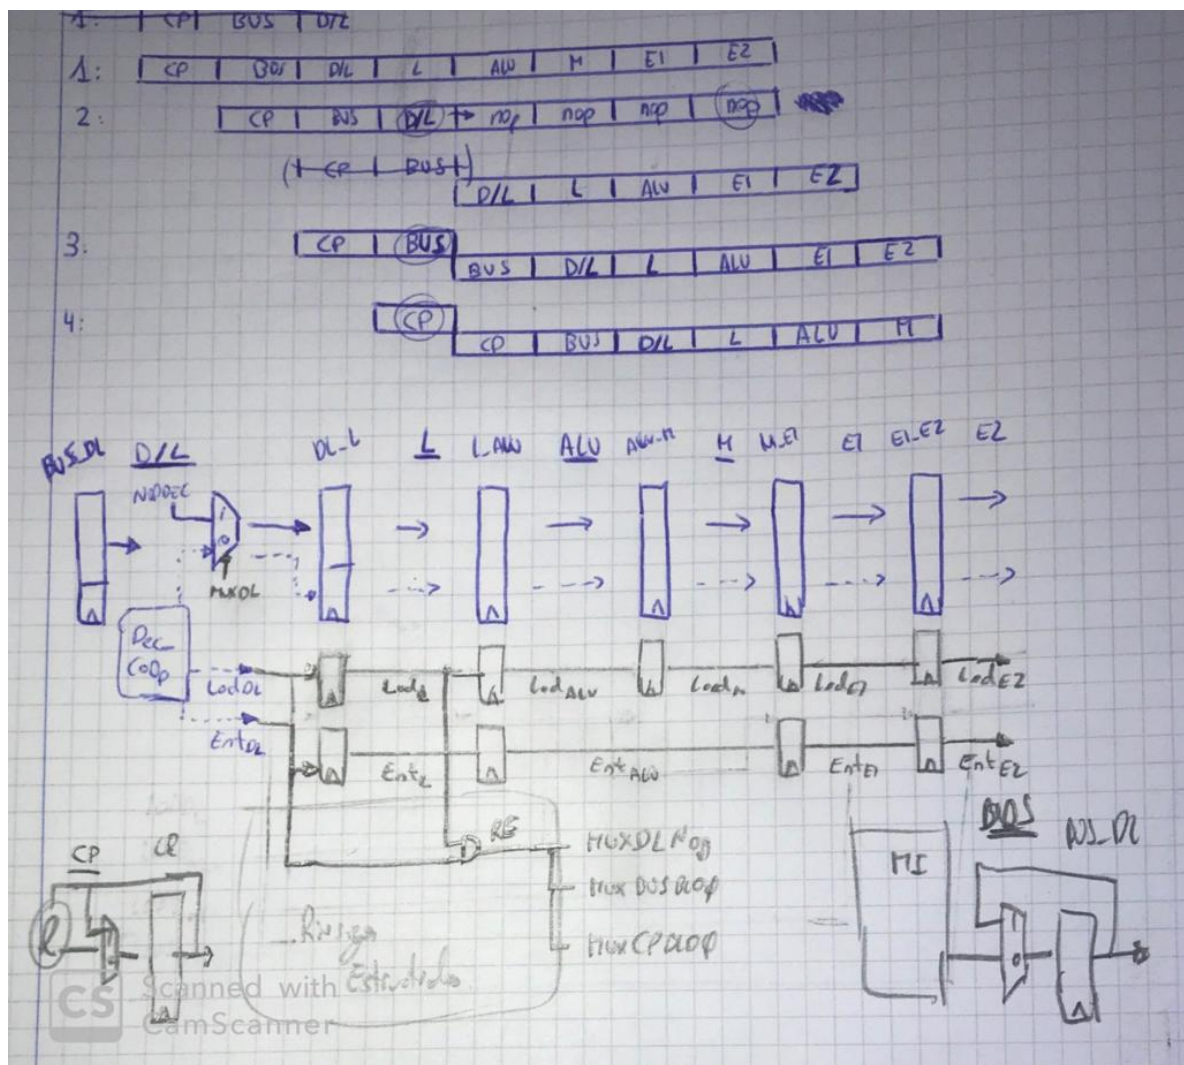 1: CP BUS D/L
1: CP BUS D/L L ALU M E1 E2
2: CP BUS D/L nop nop nop nop
CP BUS
D/L L ALU E1 E2
3: CP BUS
BUS D/L L ALU E1 E2
4: CP
CP BUS D/L L ALU M
BUS_DL D/L DL_L L L_ALU ALU ALU_M M M_E1 E1 E1_E2 E2
1
0
MUXDL
Dec_
COOp
LodDL LodL LodALU LodM LodE1 LodE2
EntDL EntL EntALU EntE1 EntE2
CP CP
RE
MUXDLNop
MUXBUSBLOP
MUXCPBLOP
MI
BUS BUS_DL
0
Riesgo
Estructurales
CS Scanned with
CamScanner